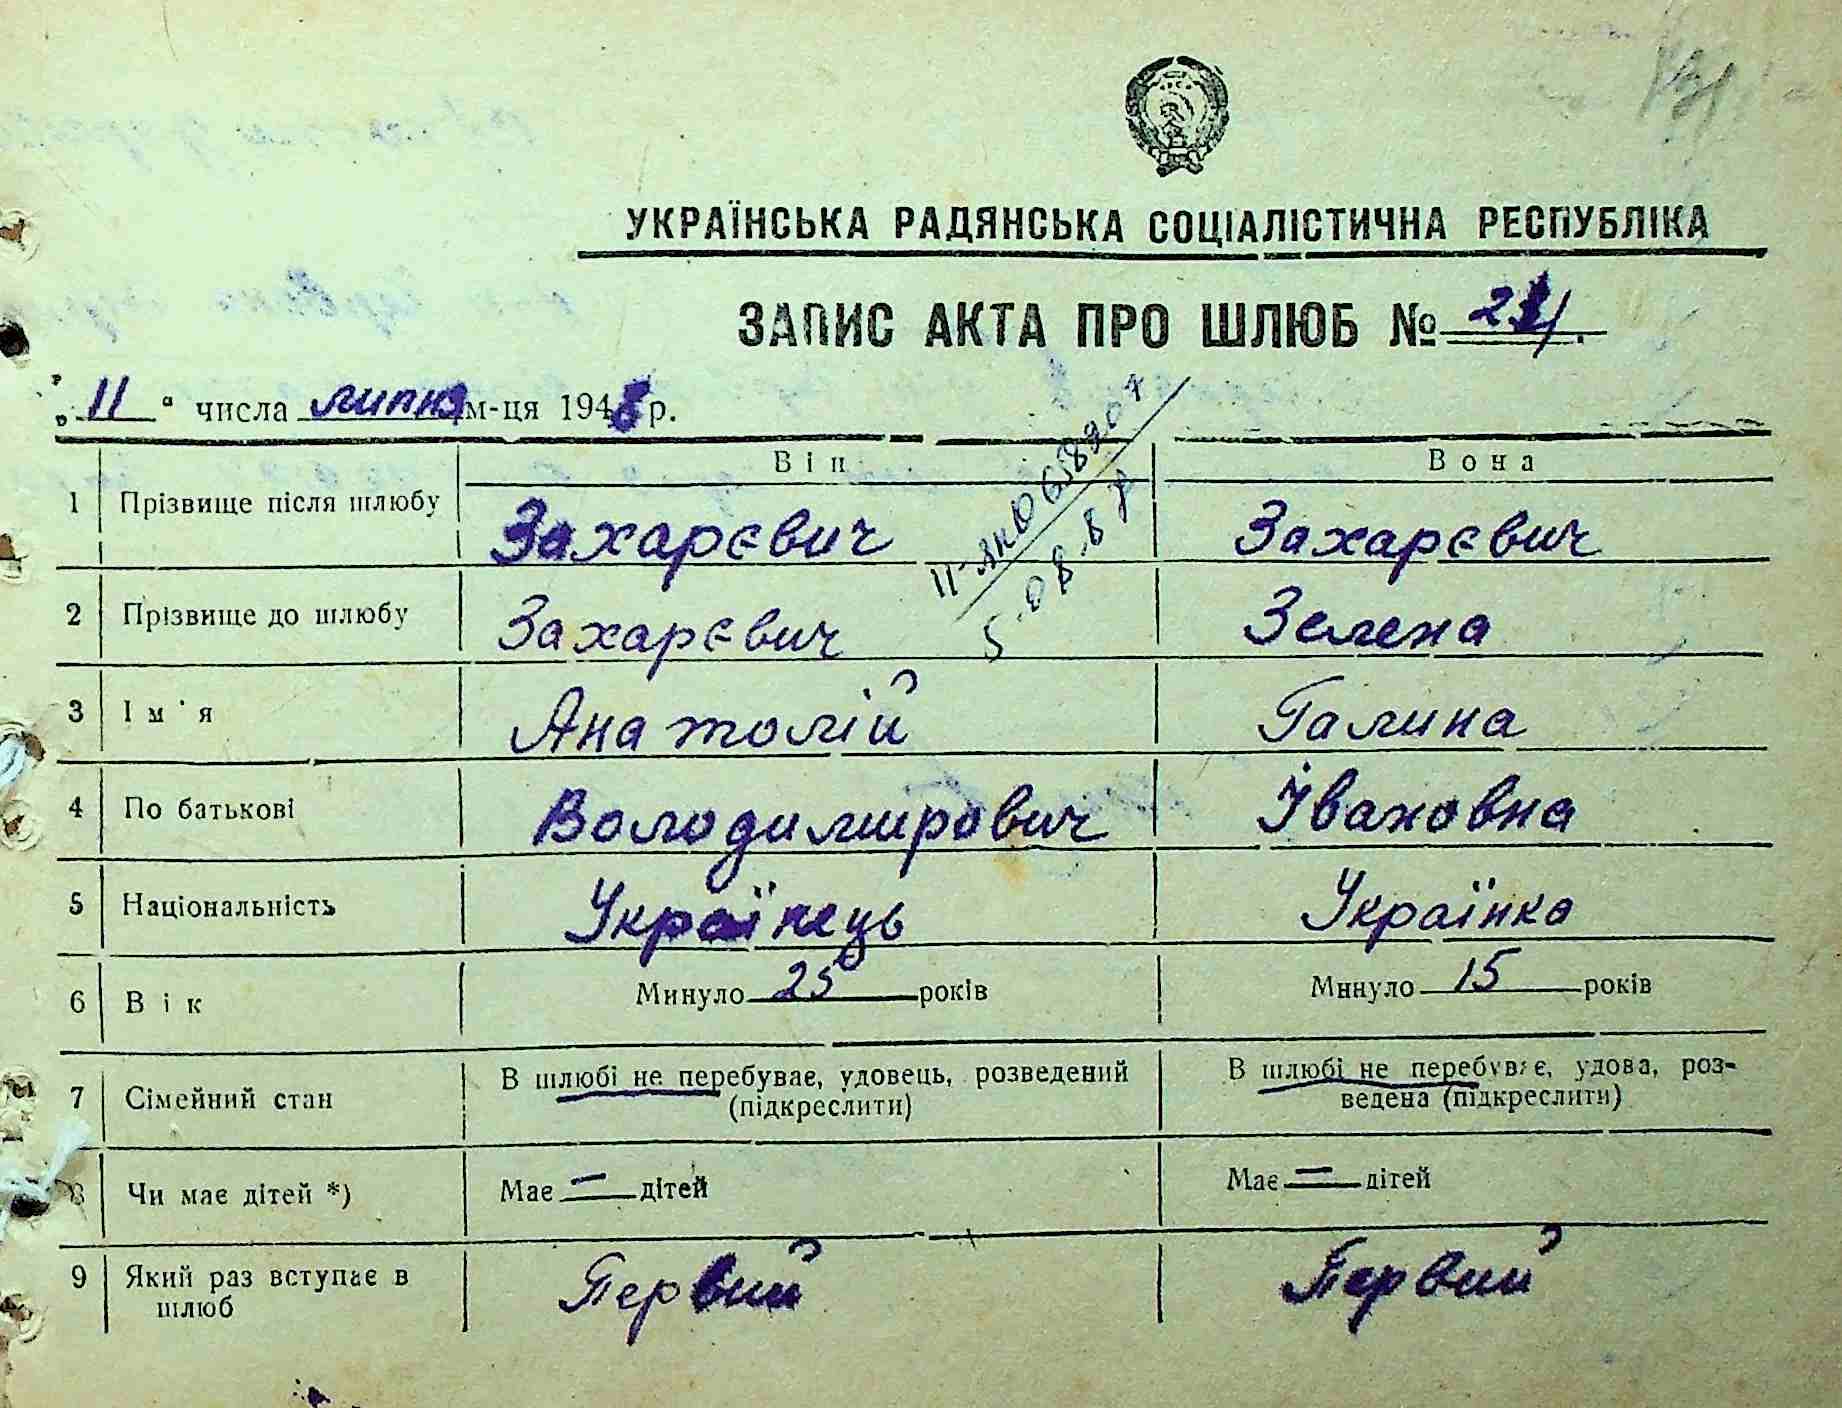 УКРАЇНСЬКА РАДЯНСЬКА СОЦІАЛІСТИЧНА РЕСПУБЛІКА
ЗАПИС АКТА ПРО ШЛЮБ №
„11“ числа липня м-ця 1948 р.
Він Вона
1 Прізвище після шлюбу Захарєвич Захарєвич
2 Прізвище до шлюбу Захарєвич Зелена
3 Ім'я Анатолій Галина
4 По батькові Володимирович Івановна
5 Національність Українець Українка
6 Вік Минуло 25 років Минуло 15 років
7 Сімейний стан В шлюбі не перебуває, удовець, розведений (підкреслити) В шлюбі не перебуває, удова, роз-
ведена (підкреслити)
8 Чи має дітей *) Має — дітей Має — дітей
9 Який раз вступає в Первий Первий
шлюб